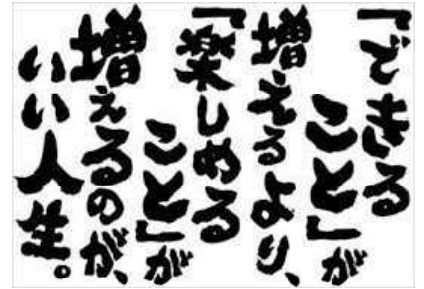 「できる
こと」が
増えるより、
「楽しめる
こと」が
増えるのが、
いい人生。